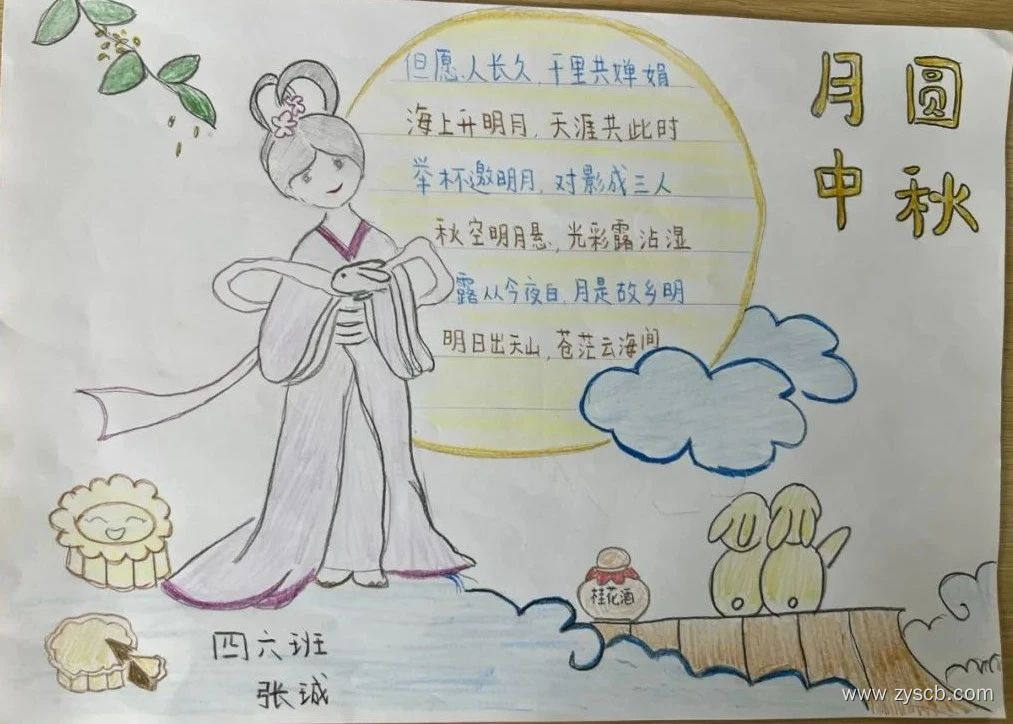 月圆
中秋
但愿人长久,千里共婵娟
海上升明月,天涯共此时
举杯邀明月,对影成三人
秋空明月悬,光彩露沾湿
露从今夜白,月是故乡明
明日出天山,苍茫云海间
桂花酒
四六班
张诚
www.zyscb.com